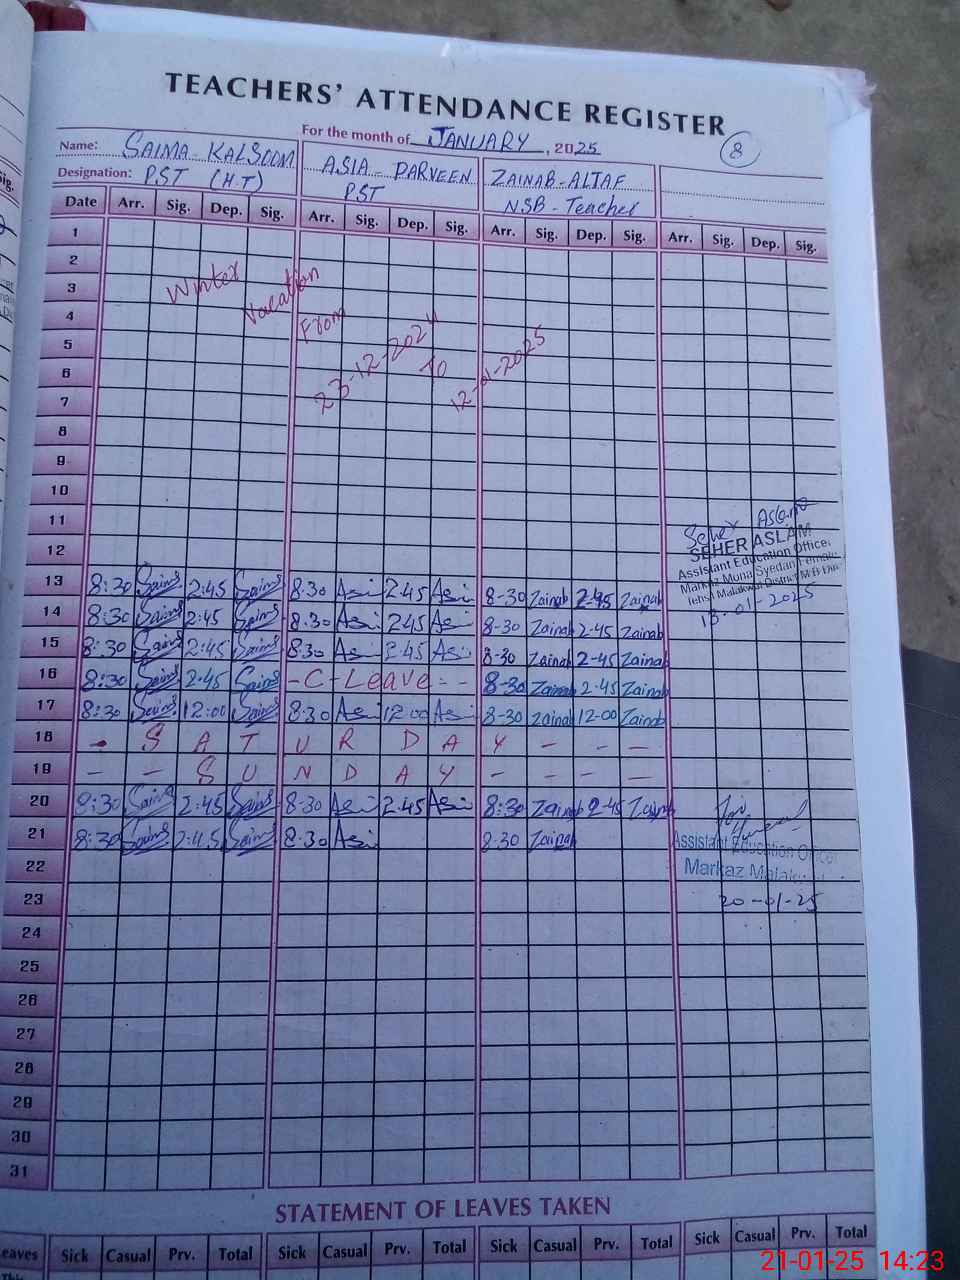 TEACHERS' ATTENDANCE REGISTER
For the month of JANUARY, 2025
8
Name: SAIMA KALSOOM ASIA PARVEEN ZAINAB-ALTAF
Designation: PST (H.T) PST NSB-Teacher
Date Arr. Sig. Dep. Sig. Arr. Sig. Dep. Sig. Arr. Sig. Dep. Sig. Arr. Sig. Dep. Sig.
1
2
3
4
5
6
7
8
9
10
11
12
Winter Vacation From 23-12-2024 To 12-01-2025
Seher Aslam
SEHER ASLAM
Assistant Education Officer
Markaz Mona Syedan Female
Tehsil Malakwal District M.B.Din
13-01-2025
13 8:30 Saima 2:45 Saima 8:30 Asi 2:45 Asi 8-30 Zainab 2-45 Zainab
14 8:30 Saima 2:45 Saima 8:30 Asi 2:45 Asi 8-30 Zainab 2-45 Zainab
15 8:30 Saima 2:45 Saima 8:30 Asi 2:45 Asi 8-30 Zainab 2-45 Zainab
16 8:30 Saima 2:45 Saima -C-Leave-- 8-30 Zainab 2-45 Zainab
17 8:30 Saima 12:00 Saima 8:30 Asi 12:00 Asi 8-30 Zainab 12-00 Zainab
18 - S A T U R D A Y - - -
19 - - S U N D A Y - - - -
20 8:30 Saima 2:45 Saima 8-30 Asi 2:45 Asi 8:30 Zainab 2-45 Zainab
21 8:30 Saima 2:45 Saima 8-30 Asi 8-30 Zainab
22
23
24
25
26
27
28
29
30
31
Assistant Education Officer
Markaz Malakwal
20-01-25
STATEMENT OF LEAVES TAKEN
Leaves Sick Casual Prv. Total Sick Casual Prv. Total Sick Casual Prv. Total Sick Casual Prv. Total
21-01-25 14:23